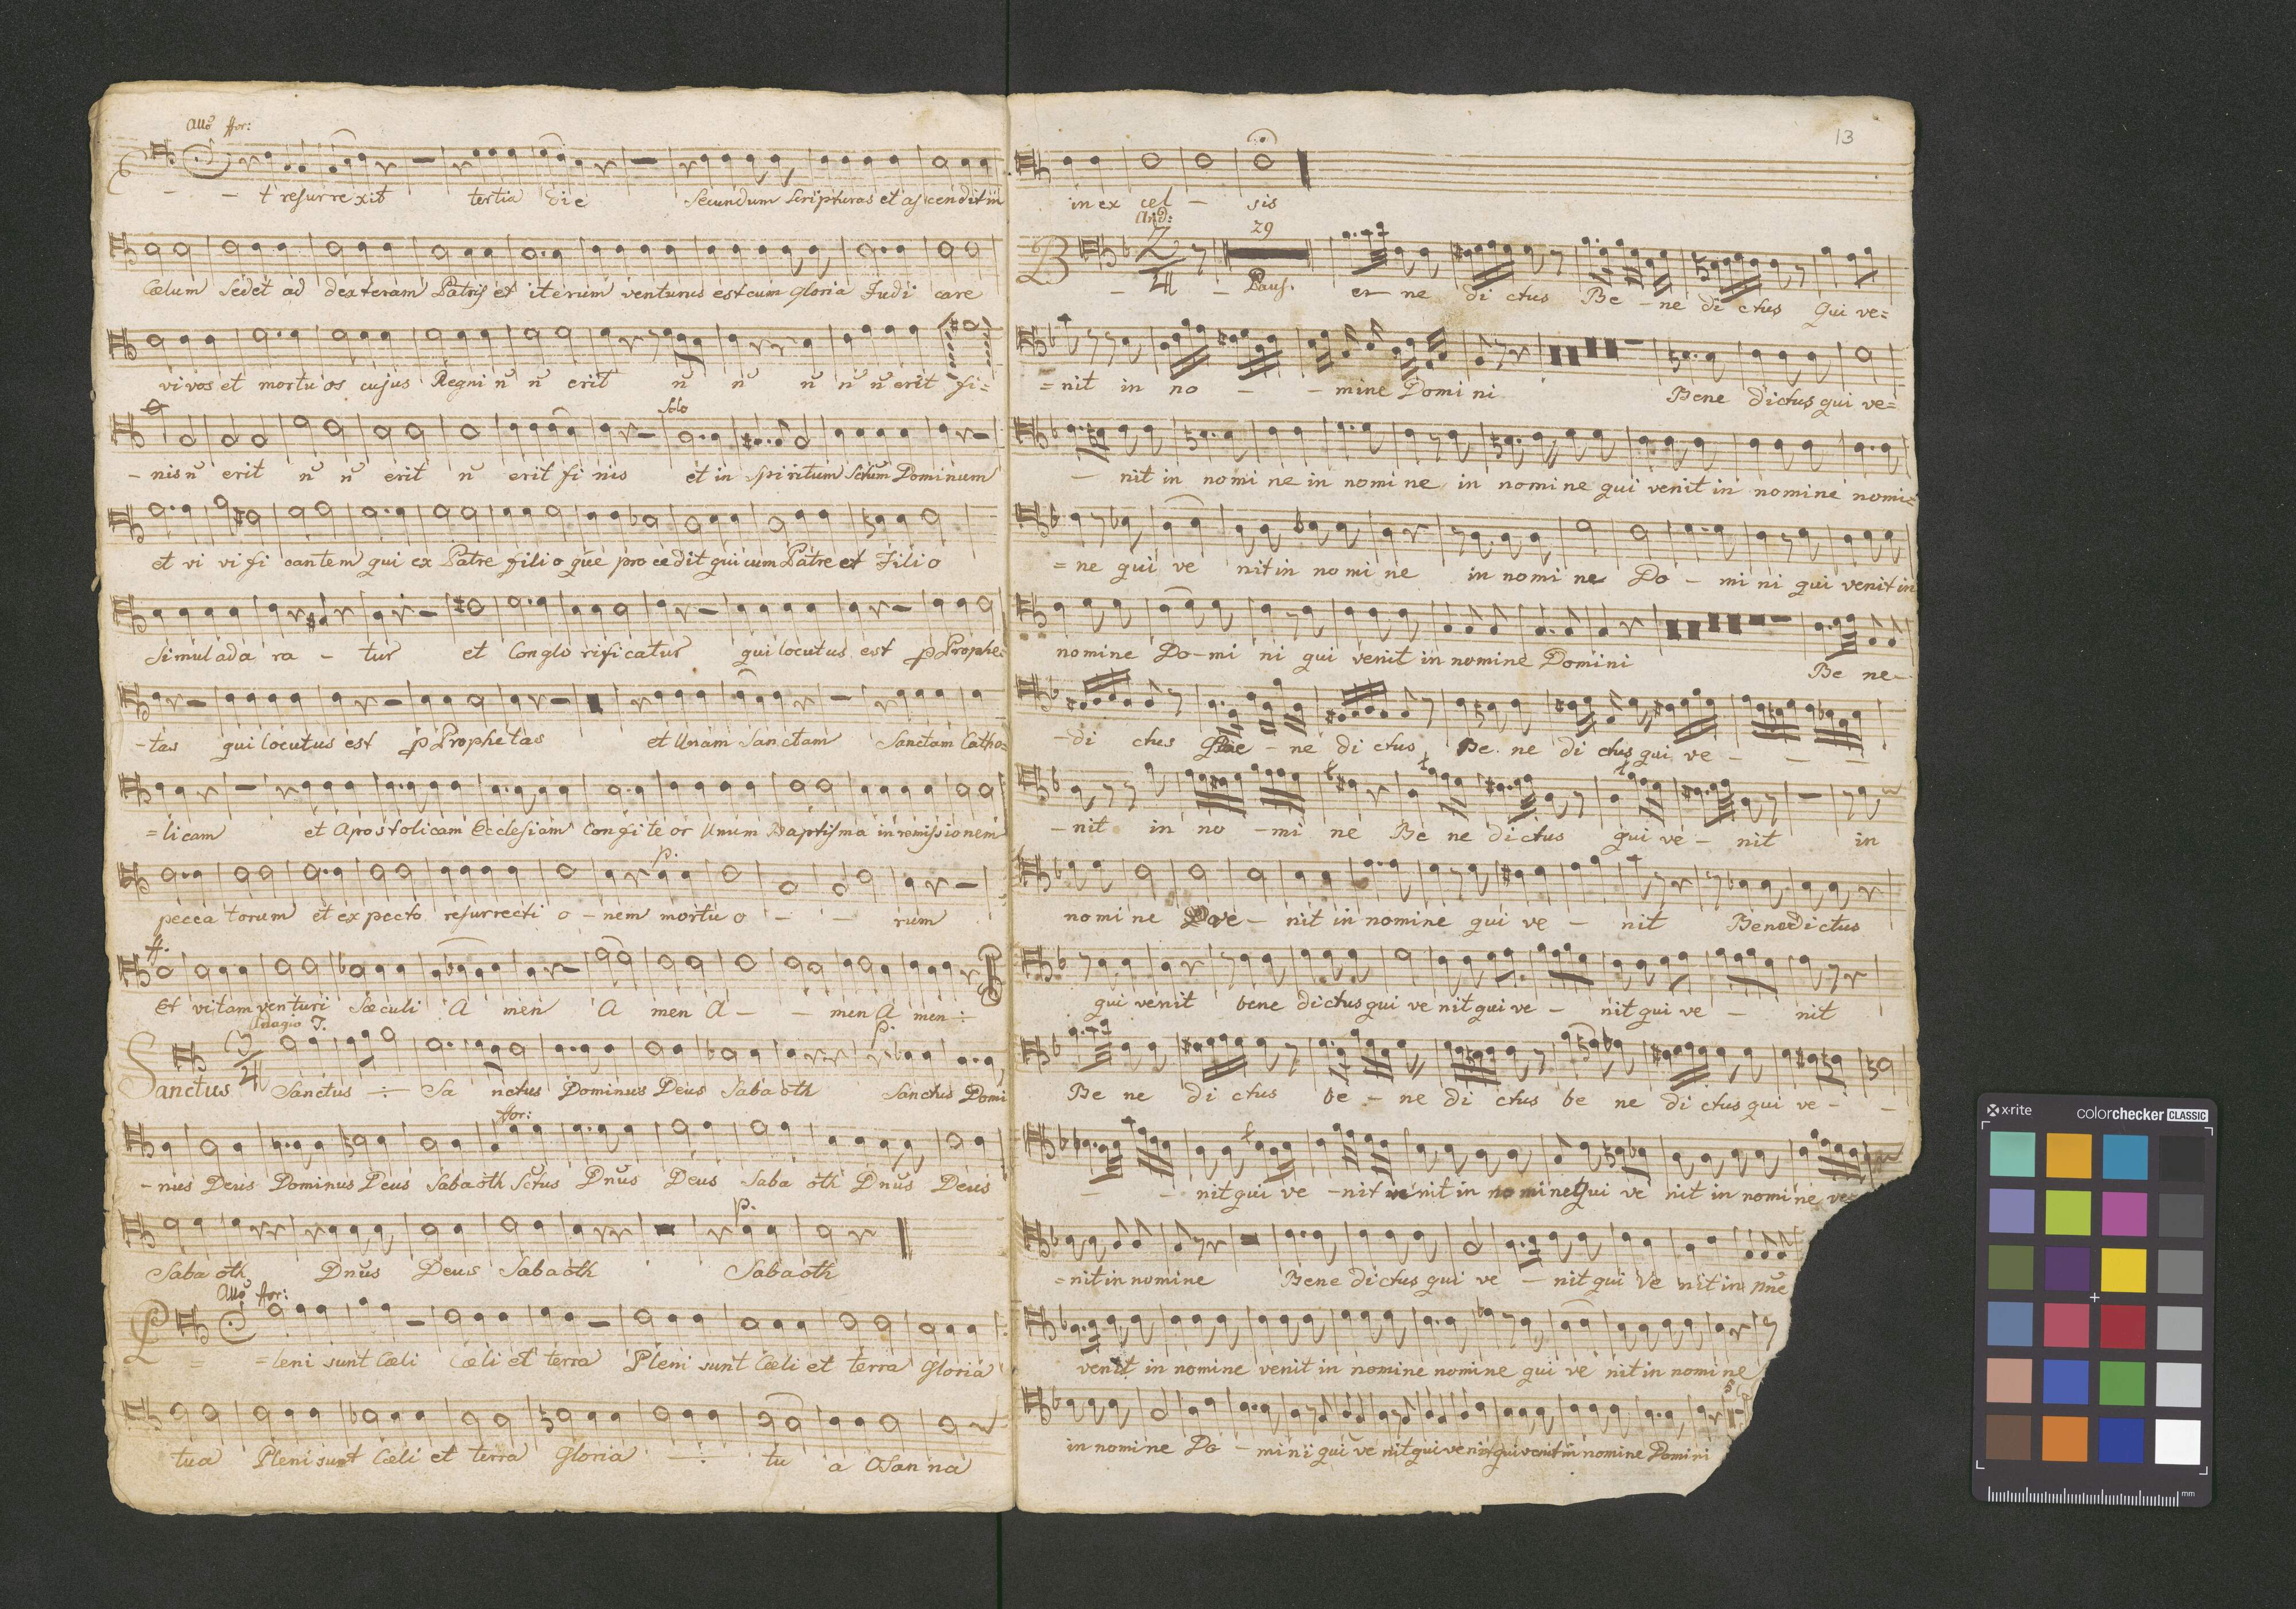 Allo ffor:
E - - t resurrexit tertia die Secundum Scripturas et ascendit in
Cœlum Sedet ad dexteram Patris et iterum venturus est cum gloria Judi care
vivos et mortuos cujus Regni nō nō erit nō nō nō nō nō erit fi=
Solo
- nis nō erit nō nō erit nō erit fi nis et in Spiritum Sctūm Dominum
et vi vi fi cantem qui ex Patre filio que procedit qui cum Patre et Filio
Simul ada ra - tur et Conglo rificatur qui locutus est p Prophe=
-tas qui locutus est p Prophetas et Unam Sanctam Sanctam Catho=
=licam et Apostolicam Ecclesiam Confiteor Unum Baptisma in remissionem
p.
peccatorum et expecto resurrecti o - nem mortu o - - rum
ff.
Et vitam venturi Sæculi A men A men A - - men A men ÷
Adagio F.
3/4
p.
Sanctus Sanctus ÷ Sa nctus Dominus Deus Sabaoth Sanctus Domi
ffor:
- nus Deus Dominus Deus Sabaoth Sctus Dnūs Deus Saba oth Dnūs Deus
p.
Saba oth Dnūs Deus Sabaoth Sabaoth
Allo ffor:
P = =leni sunt Cœli Cœli et terra Pleni sunt Cœli et terra Gloria
tua Pleni sunt Cœli et terra Gloria ÷ tu a Osanna
13
in ex cel - sis
And: 29
B 2/4 - - Paus. e - ne di ctus Be - ne di ctus Qui ve=
=nit in no - - mine Domi ni Bene dictus qui ve=
- nit in nomi ne in nomi ne in nomine qui venit in nomine nomi=
=ne qui ve nit in nomi ne in nomi ne Do - mi ni qui venit in
nomine Do-mi ni qui venit in nomine Domini Be ne-
-di ctus Be - ne di ctus Be ne di ctus qui ve - - -
-nit in no -mi ne Be ne dictus qui ve - nit in
nomi ne ve - nit in nomine qui ve - nit Benedictus
qui venit bene dictus qui ve nit qui ve - nit qui ve - nit
Be ne di ctus be - ne di ctus be ne di ctus qui ve - -
- - nit qui ve -nit nit in nomine Qui ve nit in nomi ne ve=
=nit in nomine Bene dictus qui ve - nit qui Ve nit in
venit in nomine venit in nomine nomine qui ve nit in nomi ne
in nomine Do - mini qui ve nit qui venit qui venit in nomine Domini
x-rite colorchecker CLASSIC
mm